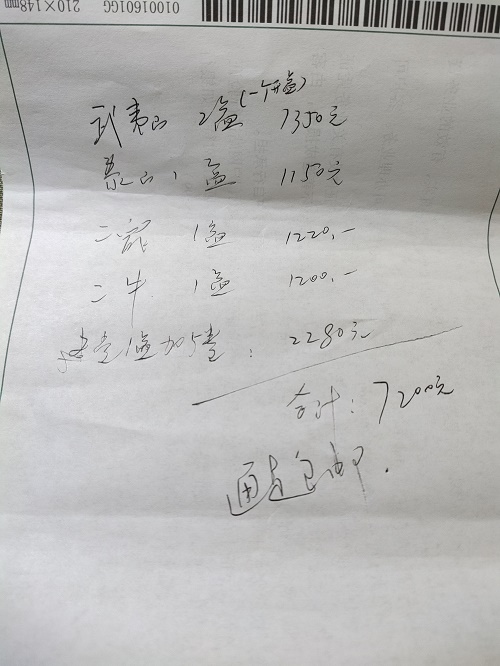 210×148mm 01001601GG
武夷山 2盒(一个开盒) 1350元
泰山 1盒 1150元
二 1盒 1220.-
二牛 1盒 1200.-
1盒加5 : 2280元
合计: 7200元
包邮.